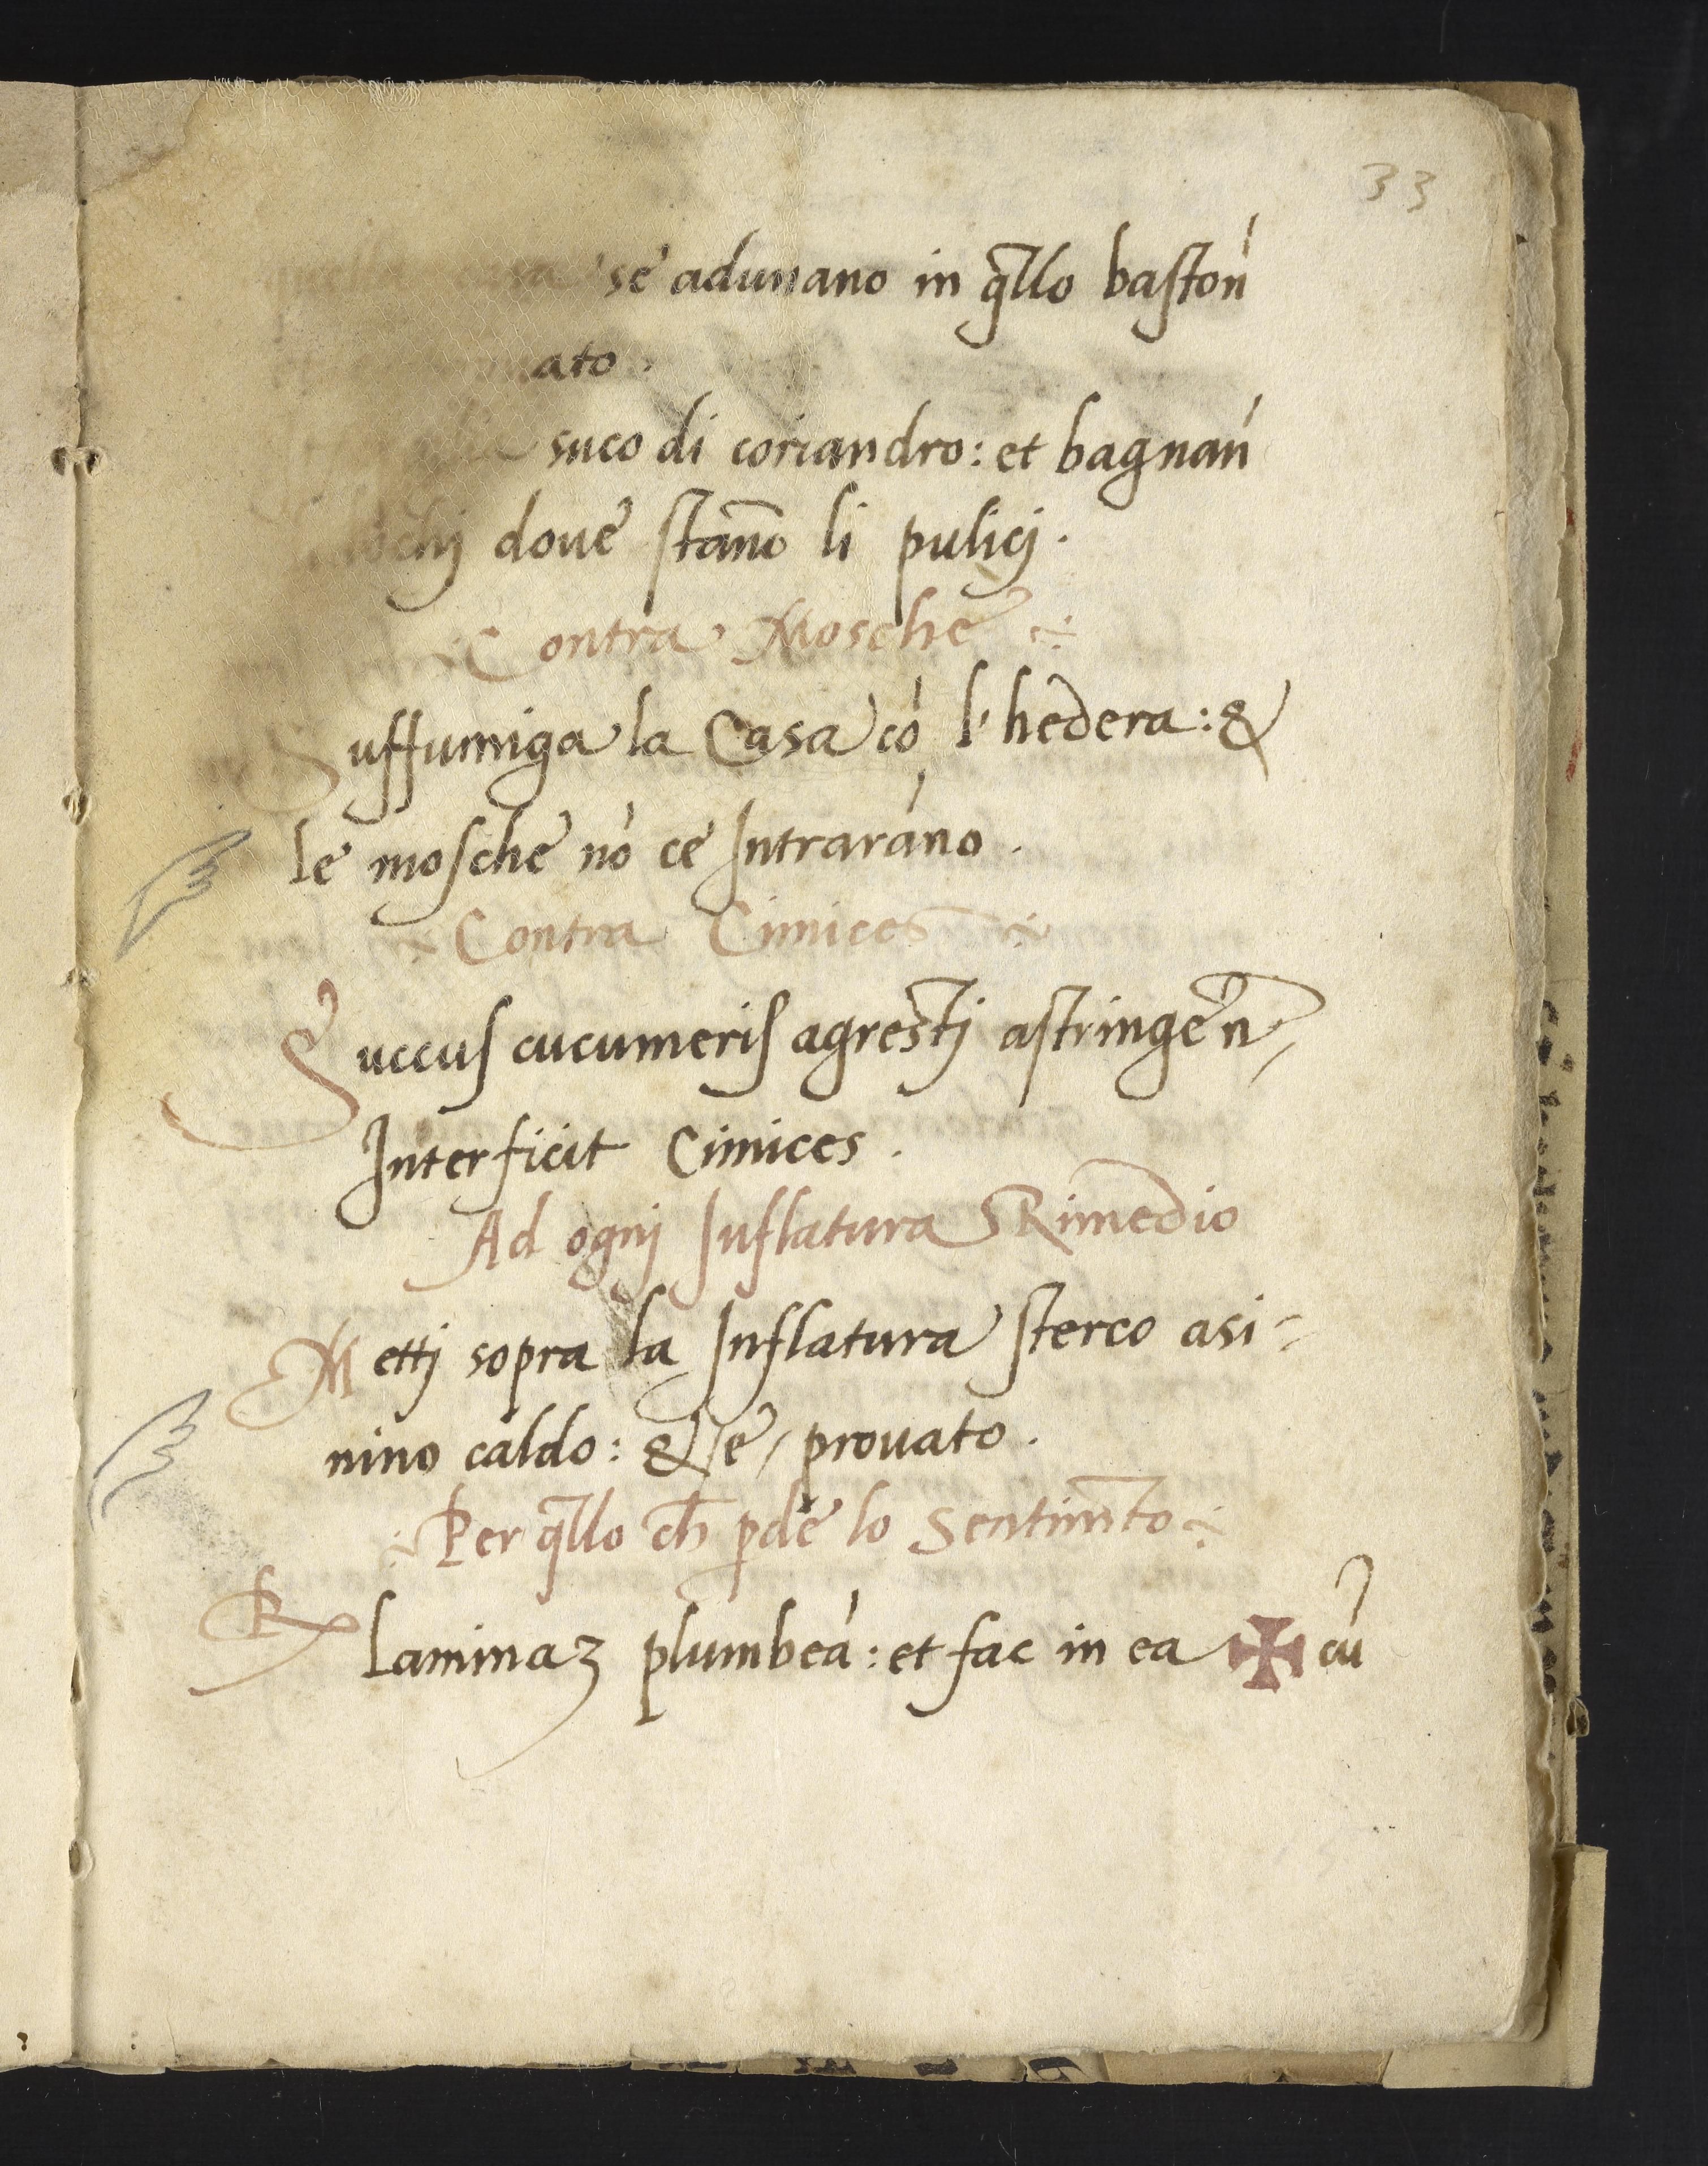 33
quella casa se adunano in q̃llo bastoń
ato.
suco di coriandro: et bagnań
lochj doue stañο li pulicj.
Contra Mosche
Suffumiga la Casa có l'hedera: &
le mosche nó ce Intraráno.
Contra Cimices
Succus cucumeris agrestj astringen̄
Interficit Cimices.
Ad ognj Inflatura Rimedio
Mettj sopra la Inflatura sterco asi-
nino caldo: & / e / prouato.
Per q̃llo ch̃ ꝑde lo Sentim̃to
℞ laminaꝫ plumbeá: et fac in ea ✠ cú